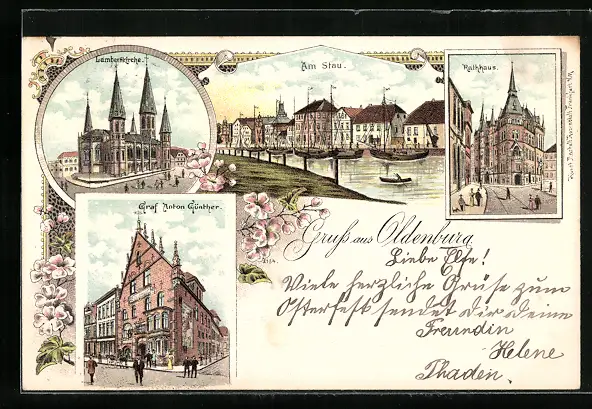 Lambertikirche.
Am Stau.
Rathhaus.
Graf Anton Günther.
Gruß aus Oldenburg
Liebe Else!
Viele herzliche Grüse zum
Osterfest sendet dir deine
Freundin
Helene
Thaden.